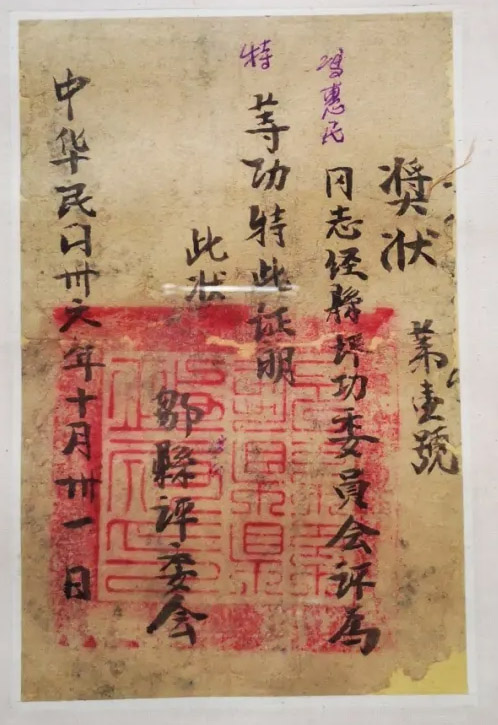 奖状
第壹號
冯惠民同志经縣評功委員会評為
特等功特此证明
此状
鄒縣評委会
中华民囯卅六年十月卅一日